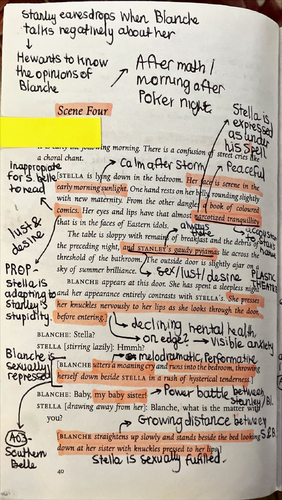 Stanley eavesdrops when Blanche
talks negatively about her
He wants to know
the opinions of
Blanche
After math /
morning after
Poker night
Scene Four
Stella is
expressed
as under
his spell
following morning. There is a confusion of street cries
a choral chant.
Calm after storm
Peaceful
inappropriate
for S. belle
to read
STELLA is lying down in the bedroom. Her face is serene in the
early morning sunlight. One hand rests on her belly, rounding slightly
with new maternity. From the other dangles a book of coloured
comics. Her eyes and lips have that almost narcotized tranquillity
that is in the faces of Eastern idols.
lust &
desire
always there
The table is sloppy with remains of breakfast and the debris of
the preceding night, and STANLEY's gaudy pyjamas lie across the
threshold of the bathroom. The outside door is slightly ajar on a
sky of summer brilliance.
sex/lust/desire
PLASTIC
THEATRE
PROP-
stella is
adapting to
stanley's
stupidity
BLANCHE appears at this door. She has spent a sleepless night
and her appearance entirely contrasts with STELLA's. She presses
her knuckles nervously to her lips as she looks through the door,
before entering.
declining mental health
on edge? → visible anxiety
BLANCHE: Stella?
STELLA [stirring lazily]: Hmmh?
melodramatic, Performative
Blanche is
sexually
repressed
[BLANCHE utters a moaning cry and runs into the bedroom, throwing
herself down beside STELLA in a rush of hysterical tenderness.]
BLANCHE: Baby, my baby sister!
Power battle between
Stanley/Bl.
STELLA [drawing away from her]: Blanche, what is the matter with
you?
Growing distance between
S & B
A03-
Southern
Belle
[BLANCHE straightens up slowly and stands beside the bed looking
down at her sister with knuckles pressed to her lips.]
Stella is sexually fufilled.
40